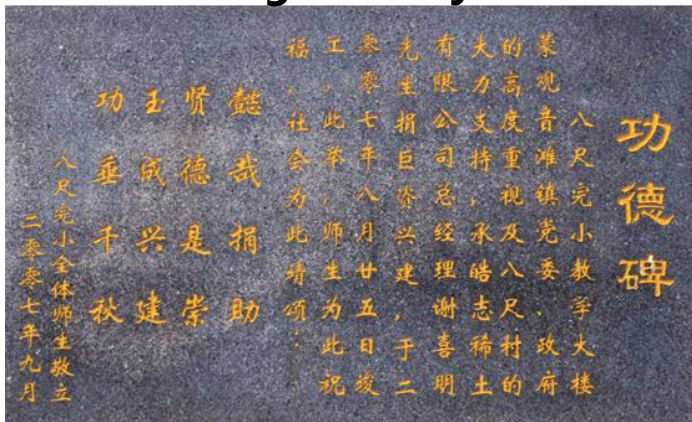 功德碑
八尺完小教学大楼
蒙观音滩镇党委、政府
的高度重视及八尺村的
大力支持，承皓志稀土
有限公司总经理谢喜明
先生捐巨资兴建，于二
零零七年八月廿五日竣
工。此举，师生为此祝
福，社会为此靖颂：
懿哉捐助
贤德是崇
玉成兴建
功垂千秋
八尺完小全体师生敬立
二零零七年九月